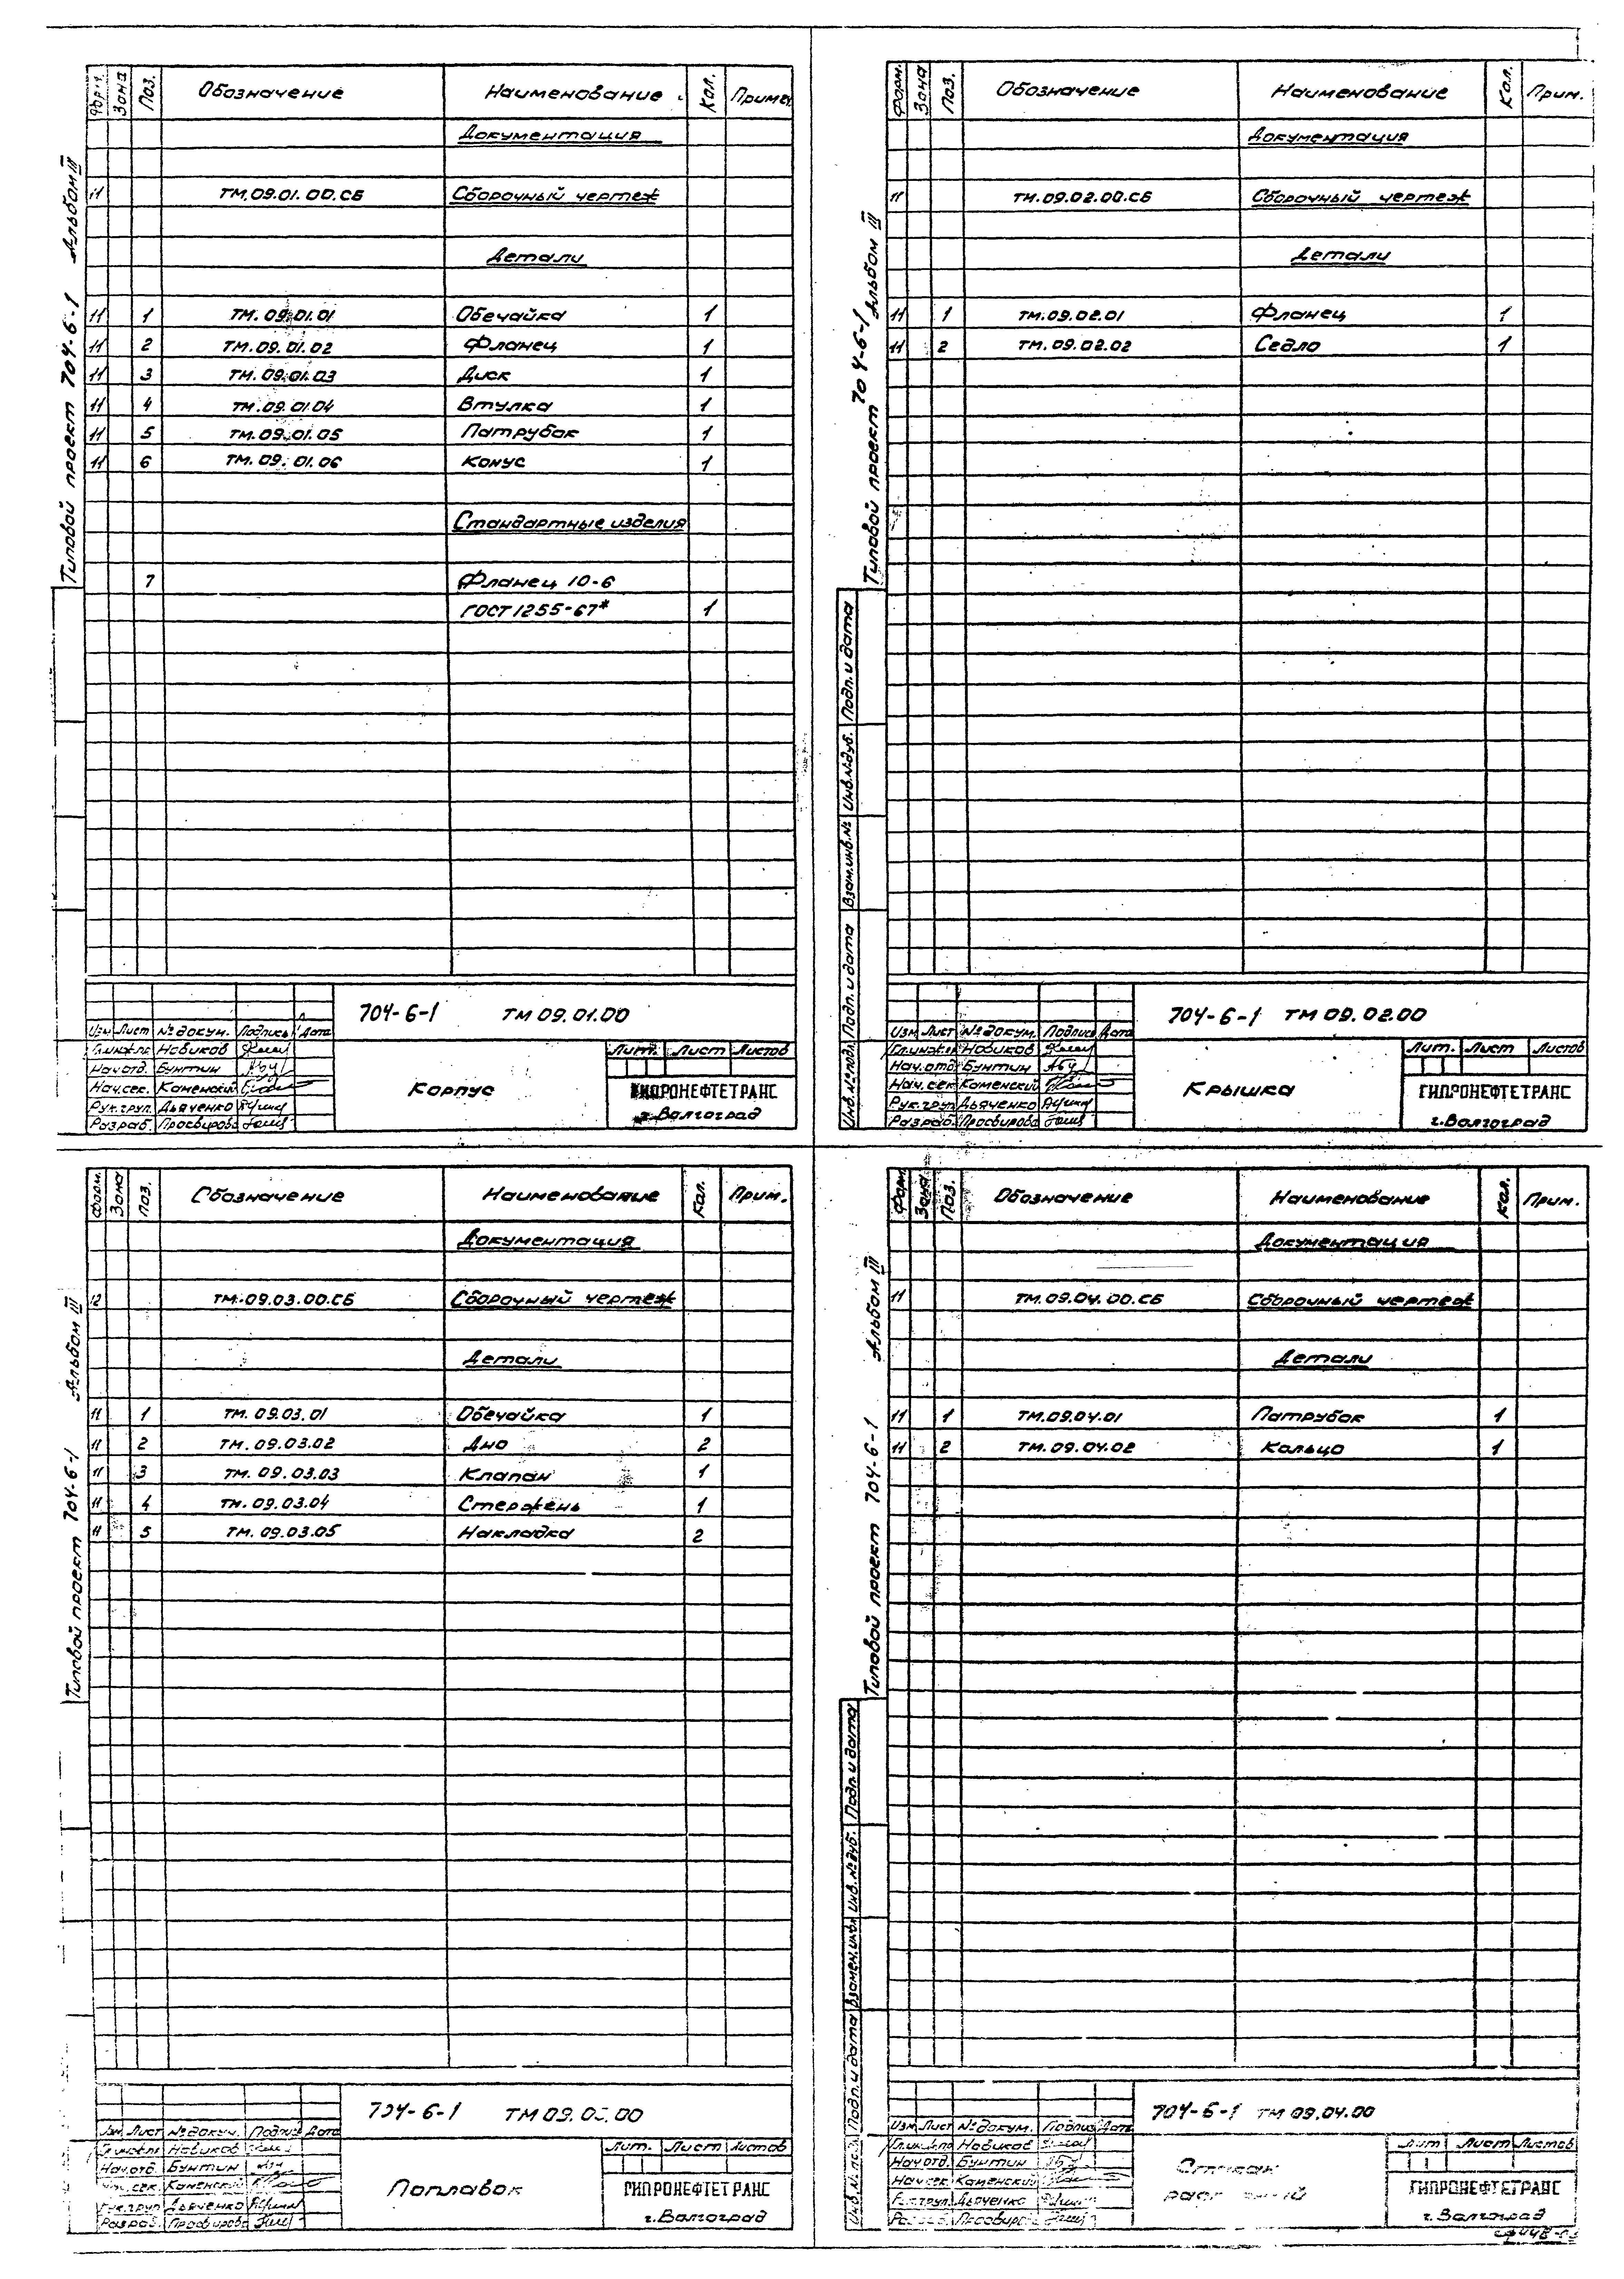 Типовой проект 704-6-1 Альбом III
Форм. Зона Поз. Обозначение Наименование Кол. Примеч
Документация
11 ТМ.09.01.00.СБ Сборочный чертеж
Детали
11 1 ТМ.09.01.01 Обечайка 1
11 2 ТМ.09.01.02 Фланец 1
11 3 ТМ.09.01.03 Диск 1
11 4 ТМ.09.01.04 Втулка 1
11 5 ТМ.09.01.05 Патрубок 1
11 6 ТМ.09.01.06 Конус 1
Стандартные изделия
7 Фланец 10-6
ГОСТ 1255-67* 1
704-6-1 ТМ 09.01.00
Изм Лист № докум. Подпись Дата
Гл.инж.пр Новиков
Нач.отд. Бунтин
Нач.сек. Каменский
Рук.груп. Дьяченко
Разраб. Просвирова
Корпус
Лит. Лист Листов
ГИПРОНЕФТЕТРАНС
г.Волгоград
Типовой проект 704-6-1 Альбом III
Инв.№подл. Подп. и дата Взам.инв.№ Инв.№дуб. Подп. и дата
Форм. Зона Поз. Обозначение Наименование Кол. Прим.
Документация
11 ТМ.09.02.00.СБ Сборочный чертеж
Детали
11 1 ТМ.09.02.01 Фланец 1
11 2 ТМ.09.02.02 Седло 1
704-6-1 ТМ 09.02.00
Изм Лист № докум. Подпись Дата
Гл.инжен Новиков
Нач.отд Бунтин
Нач.сек Каменский
Рук.груп Дьяченко
Разраб. Просвирова
Крышка
Лит. Лист Листов
ГИПРОНЕФТЕТРАНС
г.Волгоград
Типовой проект 704-6-1 Альбом III
Форм. Зона Поз. Обозначение Наименование Кол. Прим.
Документация
12 ТМ.09.03.00.СБ Сборочный чертеж
Детали
11 1 ТМ.09.03.01 Обечайка 1
11 2 ТМ.09.03.02 Дно 2
11 3 ТМ.09.03.03 Клапан 1
11 4 ТМ.09.03.04 Стержень 1
11 5 ТМ.09.03.05 Накладка 2
704-6-1 ТМ 09.03.00
Изм Лист № докум. Подпись Дата
Гл.инж.пр Новиков
Нач.отд. Бунтин
Нач.сек. Каменский
Рук.груп Дьяченко
Разраб. Просвирова
Поплавок
Лит. Лист Листов
ГИПРОНЕФТЕТРАНС
г.Волгоград
Типовой проект 704-6-1 Альбом III
Подп. и дата Взамен.инв.№ Инв.№дуб. Подп. и дата
Форм Зона Поз. Обозначение Наименование Кол. Прим.
Документация
11 ТМ.09.04.00.СБ Сборочный чертеж
Детали
11 1 ТМ.09.04.01 Патрубок 1
11 2 ТМ.09.04.02 Кольцо 1
704-6-1 ТМ 09.04.00
Изм Лист № докум. Подпись Дата
Гл.инж.пр Новиков
Нач.отд. Бунтин
Нач.сек Каменский
Рук.груп. Дьяченко
Разраб. Просвирова
Стакан
Лит Лист Листов
ГИПРОНЕФТЕТРАНС
г.Волгоград